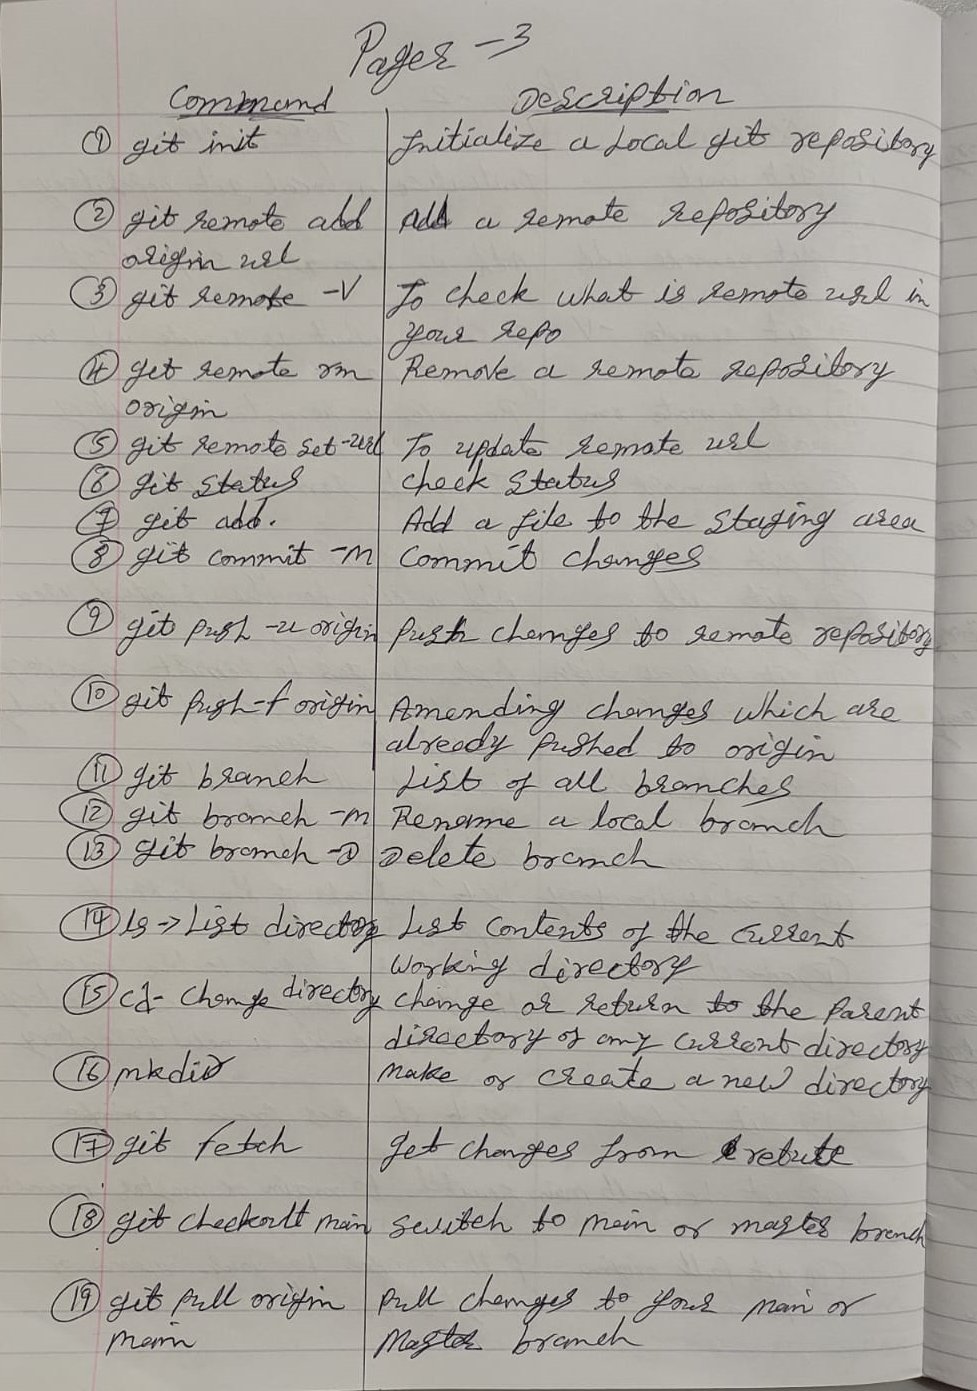 Pages -3
Command Description
① git init Initialize a Local git repository
② git remote add Add a remote repository
origin url
③ git remote -V To check what is remote url in
your repo
④ get remote rm Remove a remote repository
origin
⑤ git remote set-url To update remote url
⑥ git status check status
⑦ git add. Add a file to the staging area
⑧ git commit -m Commit changes
⑨ git push -u origin Push changes to remote repository
⑩ git push -f origin Amending changes which are
already pushed to origin
⑪ git branch List of all branches
⑫ git branch -m Rename a local branch
⑬ git branch -D Delete branch
⑭ ls -> List directory List contents of the current
working directory
⑮ cd - Change directory change or return to the parent
directory of any current directory
⑯ mkdir Make or create a new directory
⑰ git fetch get changes from
⑱ git checkoutt main switch to main or master branch
⑲ git pull origin Pull changes to your main or
main Master branch